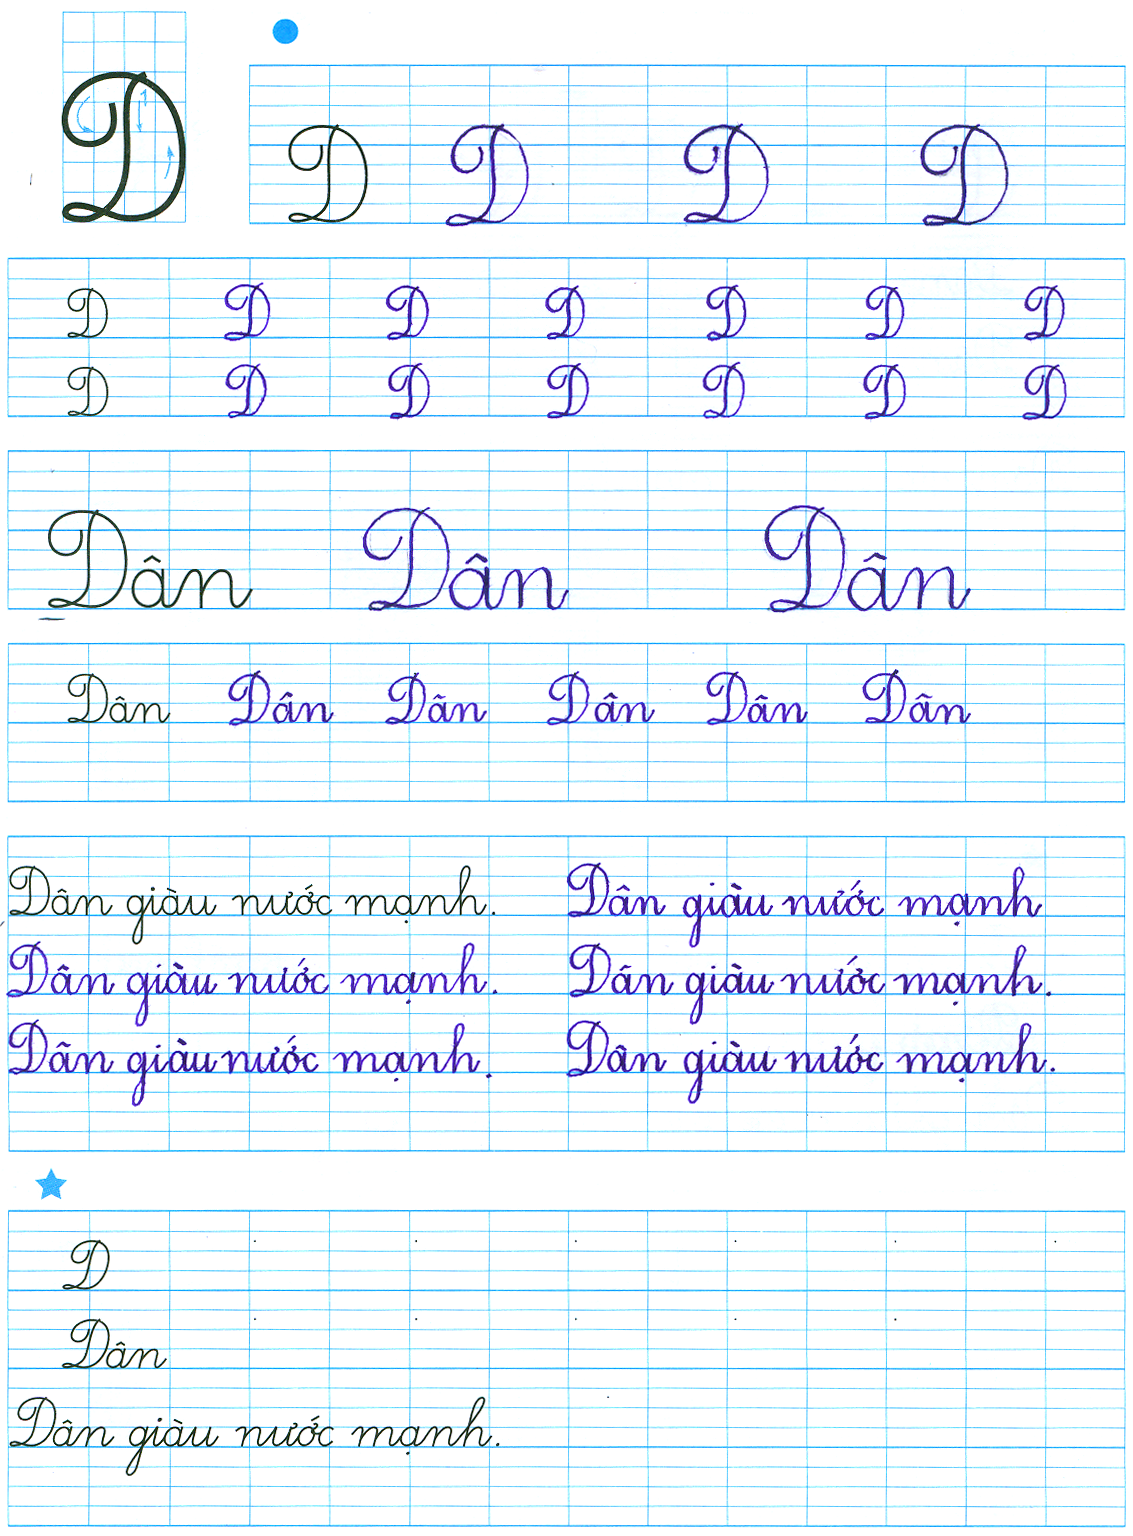 D D D D D
D D D D D D D
D D D D D D D
Dân Dân Dân
Dân Dân Dãn Dân Dân Dãn
Dân giàu nước mạnh. Dân giàu nước mạnh
Dân giàu nước mạnh. Dãn giàu nước mạnh.
Dãn giàu nước mạnh. Dân giàu nước mạnh.
D
Dân
Dân giàu nước mạnh.